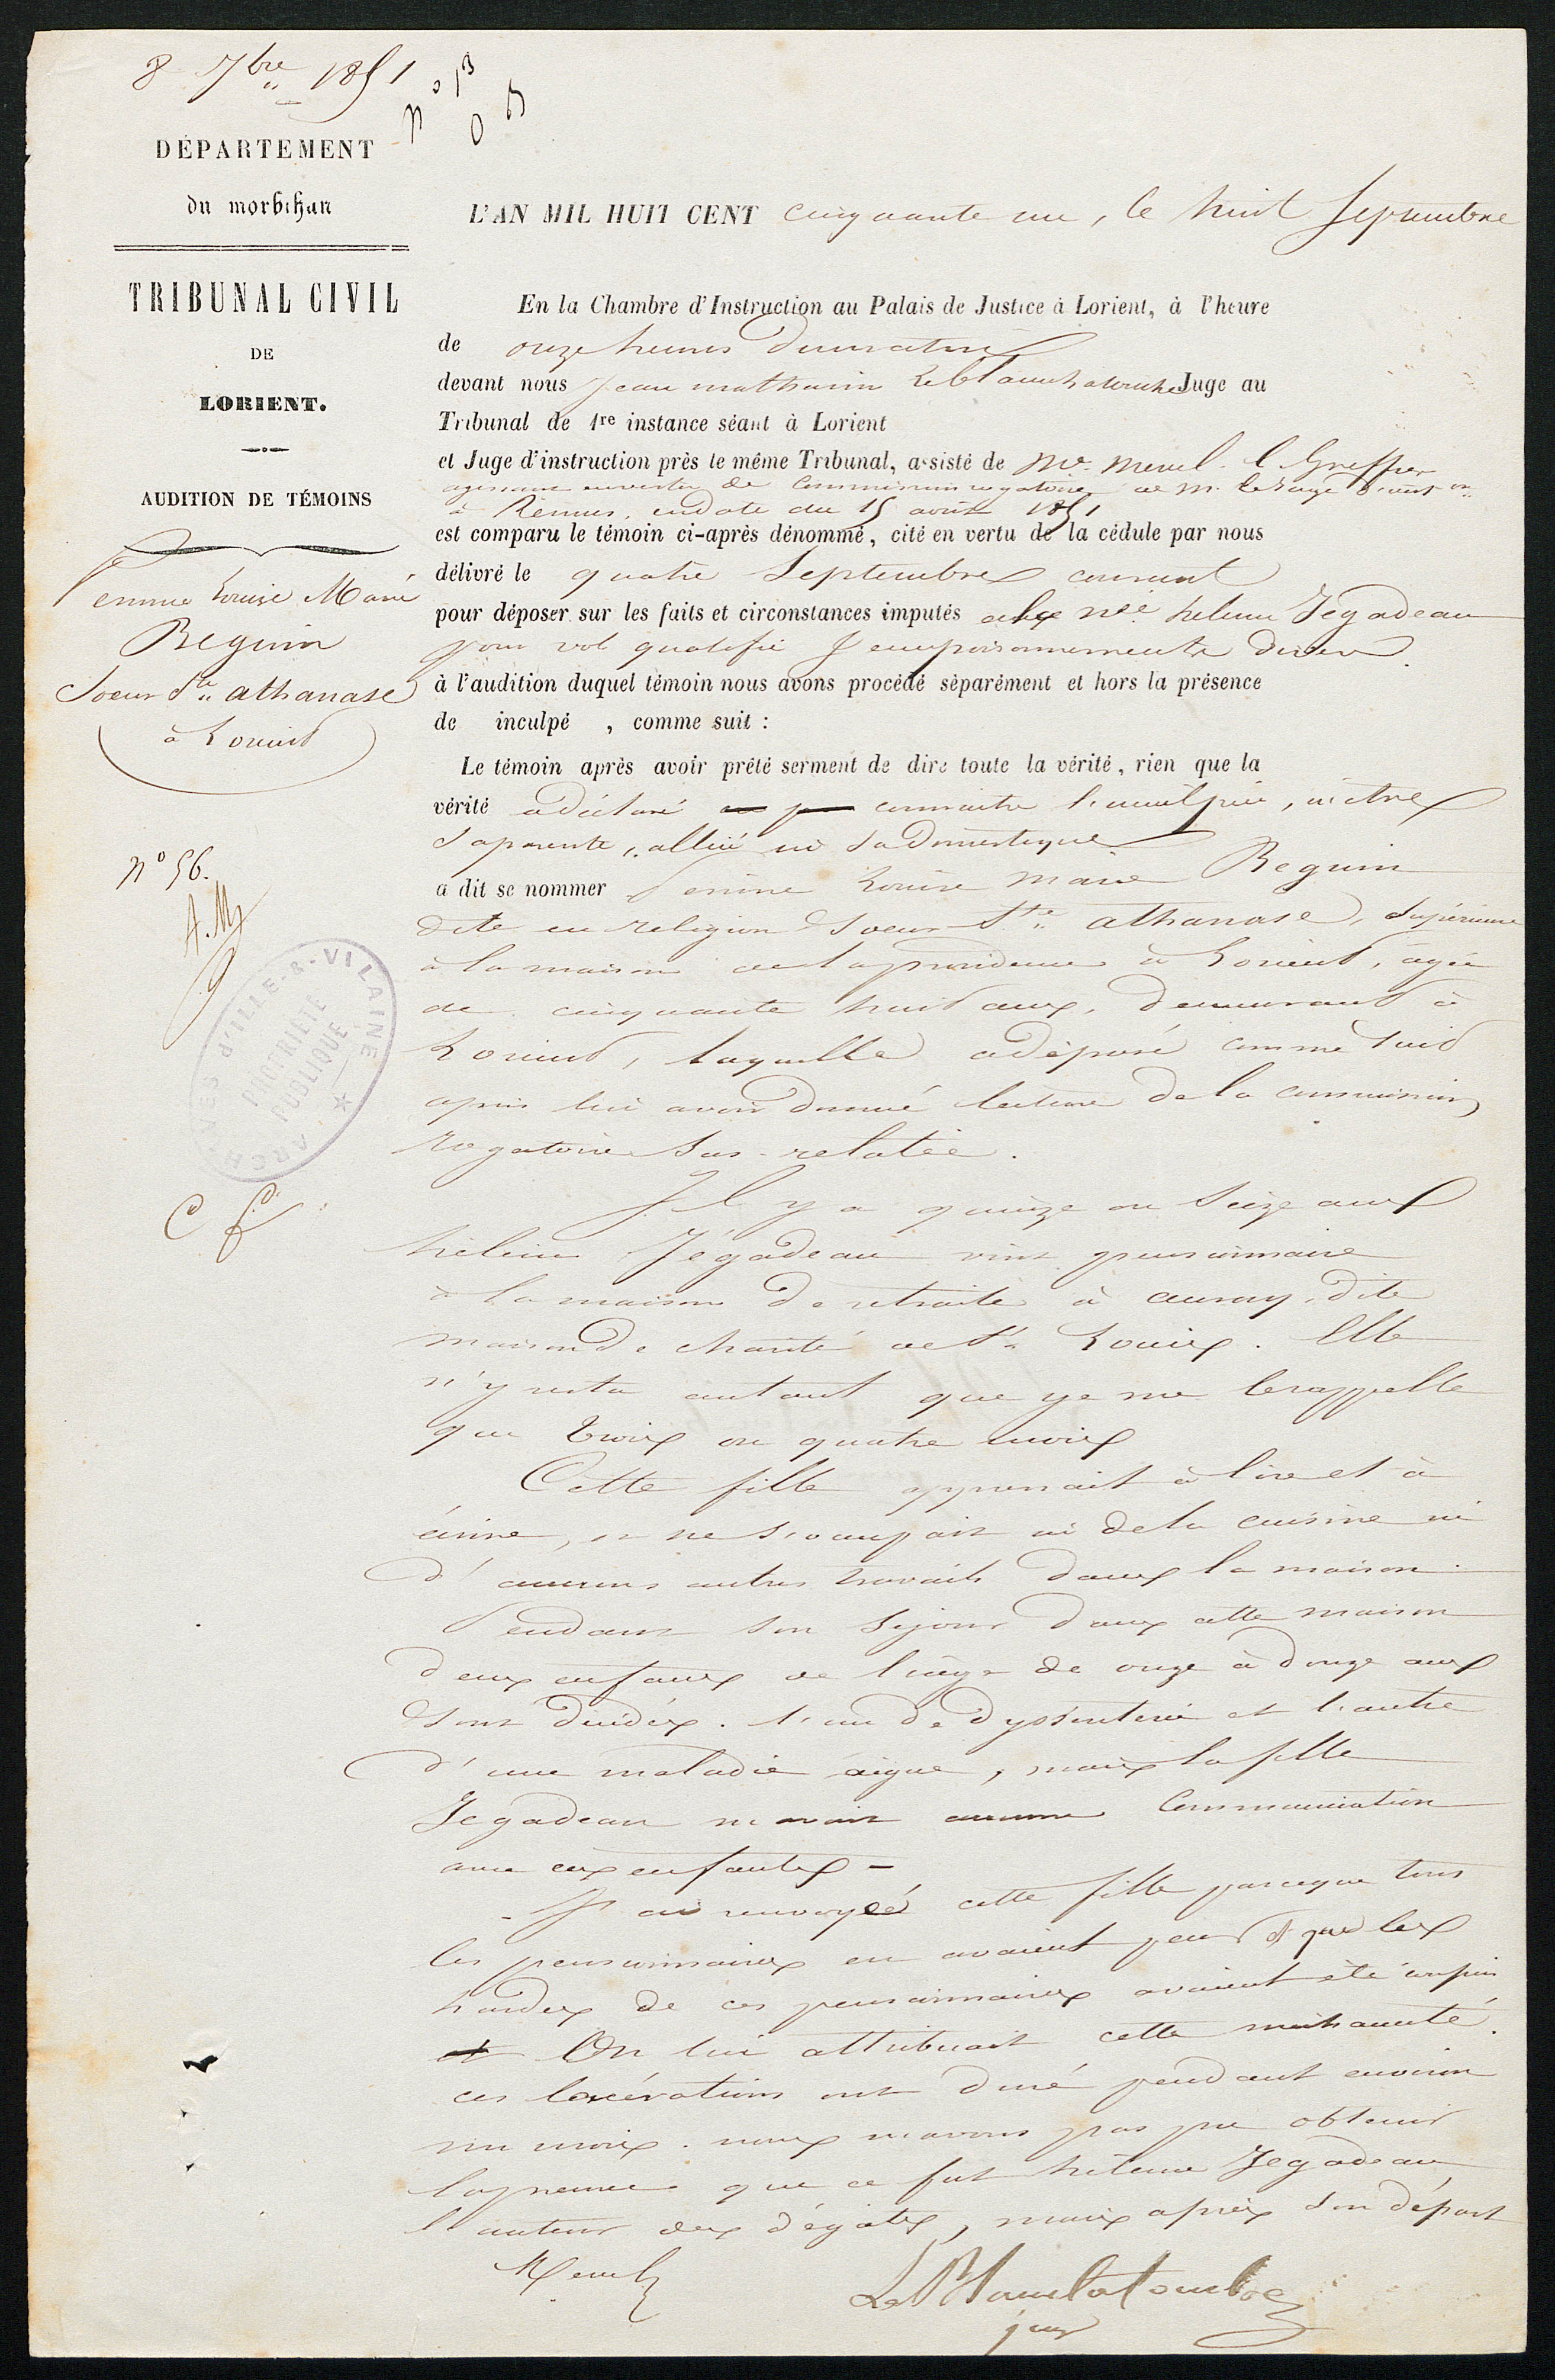 8 7bre 1851
DÉPARTEMENT
du morbihan
TRIBUNAL CIVIL
DE
LORIENT.
AUDITION DE TÉMOINS
Louise Marie
Beguin
Soeur Ste athanase
à Lorient
n° 56.
A.M
ARCHIVES d'ILLE-&-VILAINE
PROPRIÉTÉ
PUBLIQUE
L'AN MIL HUIT CENT cinquante un, le huit Septembre
En la Chambre d'Instruction au Palais de Justice à Lorient, à l'heure
de onze heures du matin
devant nous Jean mathurin Juge au
Tribunal de 1re instance séant à Lorient
et Juge d'instruction près le même Tribunal, assisté de Greffier
de Commission rogatoire de M. le Juge d'inst on
à Rennes, en date du 15 août 1851
est comparu le témoin ci-après dénommé, cité en vertu de la cédule par nous
délivré le quatre Septembre courant
pour déposer sur les faits et circonstances imputés née helene Jegadeau
pour vol qualifié & empoisonnements divers.
à l'audition duquel témoin nous avons procédé séparément et hors la présence
de inculpé , comme suit :
Le témoin après avoir prêté serment de dire toute la vérité, rien que la
vérité a déclaré connaitre l'inculpée, n'etre
Sa parente, alliée ni Sa Domestique
a dit se nommer Louise marie Beguin
dite en religion Soeur Ste athanase, Supérieure
à la maison de la providence à Lorient, agée
de cinquante huit ans, demeurant à
Lorient, laquelle a déposé comme Suit
après lui avoir donné lecture de la commission
rogatoire Sus-relatée.
Il y a quinze ou Seize ans
hélène Jégadeau vint pensionnaire
à la maison de retraite à auray, dite
maison de charité de St Louis. Elle
n'y resta autant que je me le rappelle
que trois ou quatre mois
Cette fille apprenait à lire et à
écrire, et ne s'occupait ni de la cuisine ni
d'aucuns autres travails dans la maison.
Pendant Son Sejour dans cette maison
deux enfans de l'âge de onze à douze ans
Sont décédés. l'un de dyssenterie et l'autre
d'une maladie aigue, mais la fille
Jegadeau n'avait aucune Communication
avec ces enfants -
- J'ai renvoyéé cette fille parceque tous
les pensionnaires en avaient peur & que les
hardes de ces pensionnaires avaient été coupées
et On lui attribuait cette méchanceté.
ces lacérations ont duré pendant environ
un mois. nous n'avons pas pu obtenir
la preuve que ce fut hélene Jegadeau
l'auteur des dégâts, mais après Son départ